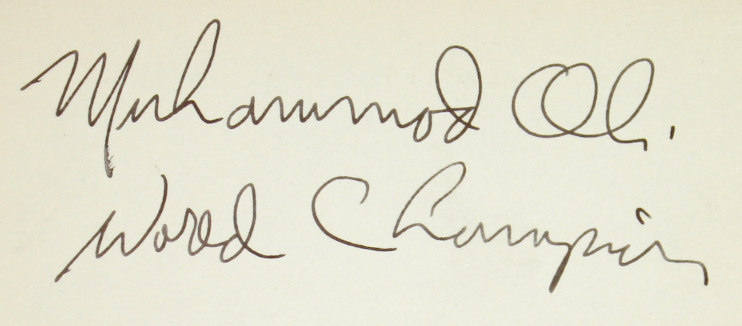 Muhammad Ali.
World Champion